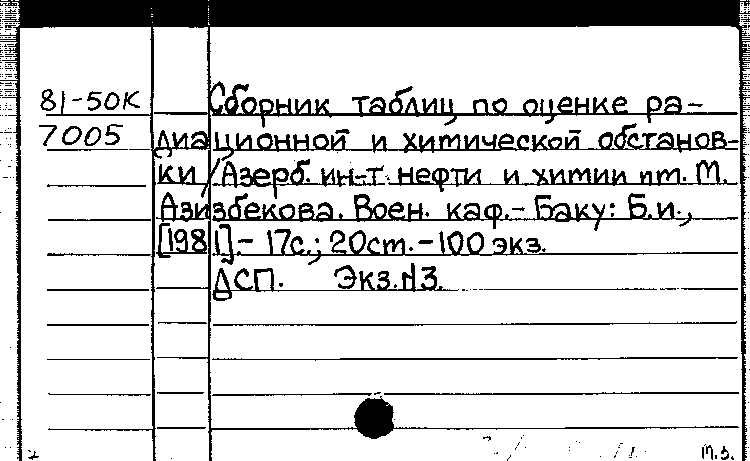 81-50К Сборник таблиц по оценке ра-
7005 диационной и химической обстанов-
ки/Азерб. ин-т нефти и химии им. М.
Азизбекова. Воен. каф.- Баку: Б.и.,
[1981].- 17с.; 20см.-100 экз.
ДСП. Экз.N3.
М.З.